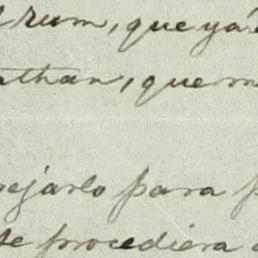 rum, que ya
athan, que m
ejarlo para p
se procediera a